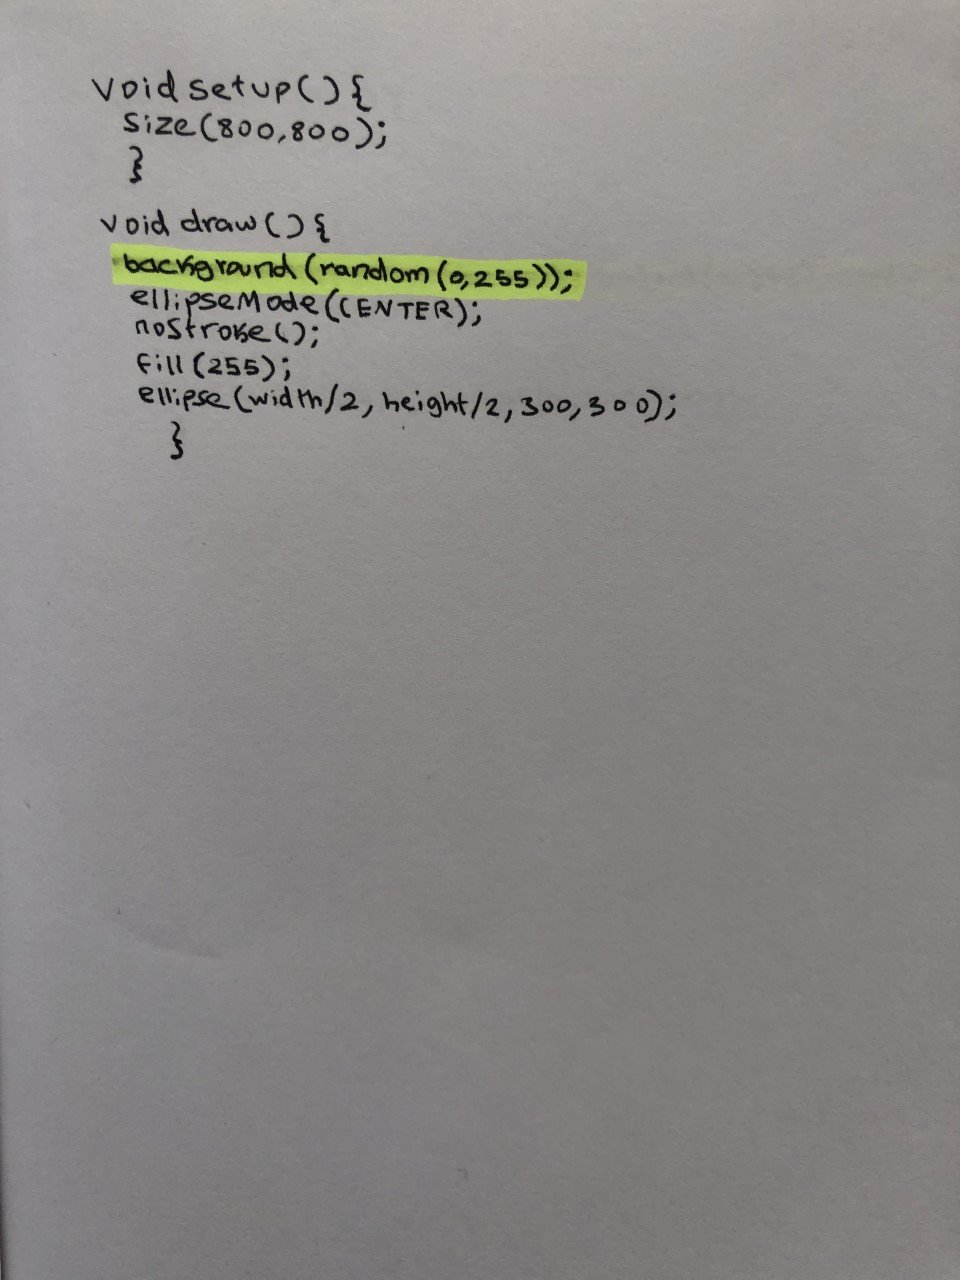 void setup(){
size(800,800);
}
void draw(){
background(random(0,255));
ellipseMode(CENTER);
noStroke();
fill(255);
ellipse(width/2, height/2, 300, 300);
}